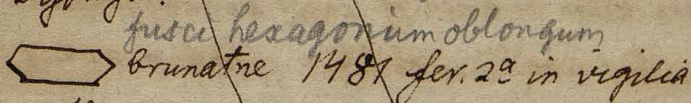 fusci hexagonium oblongum
brunatne 1481 fer. 2ª in vigilia